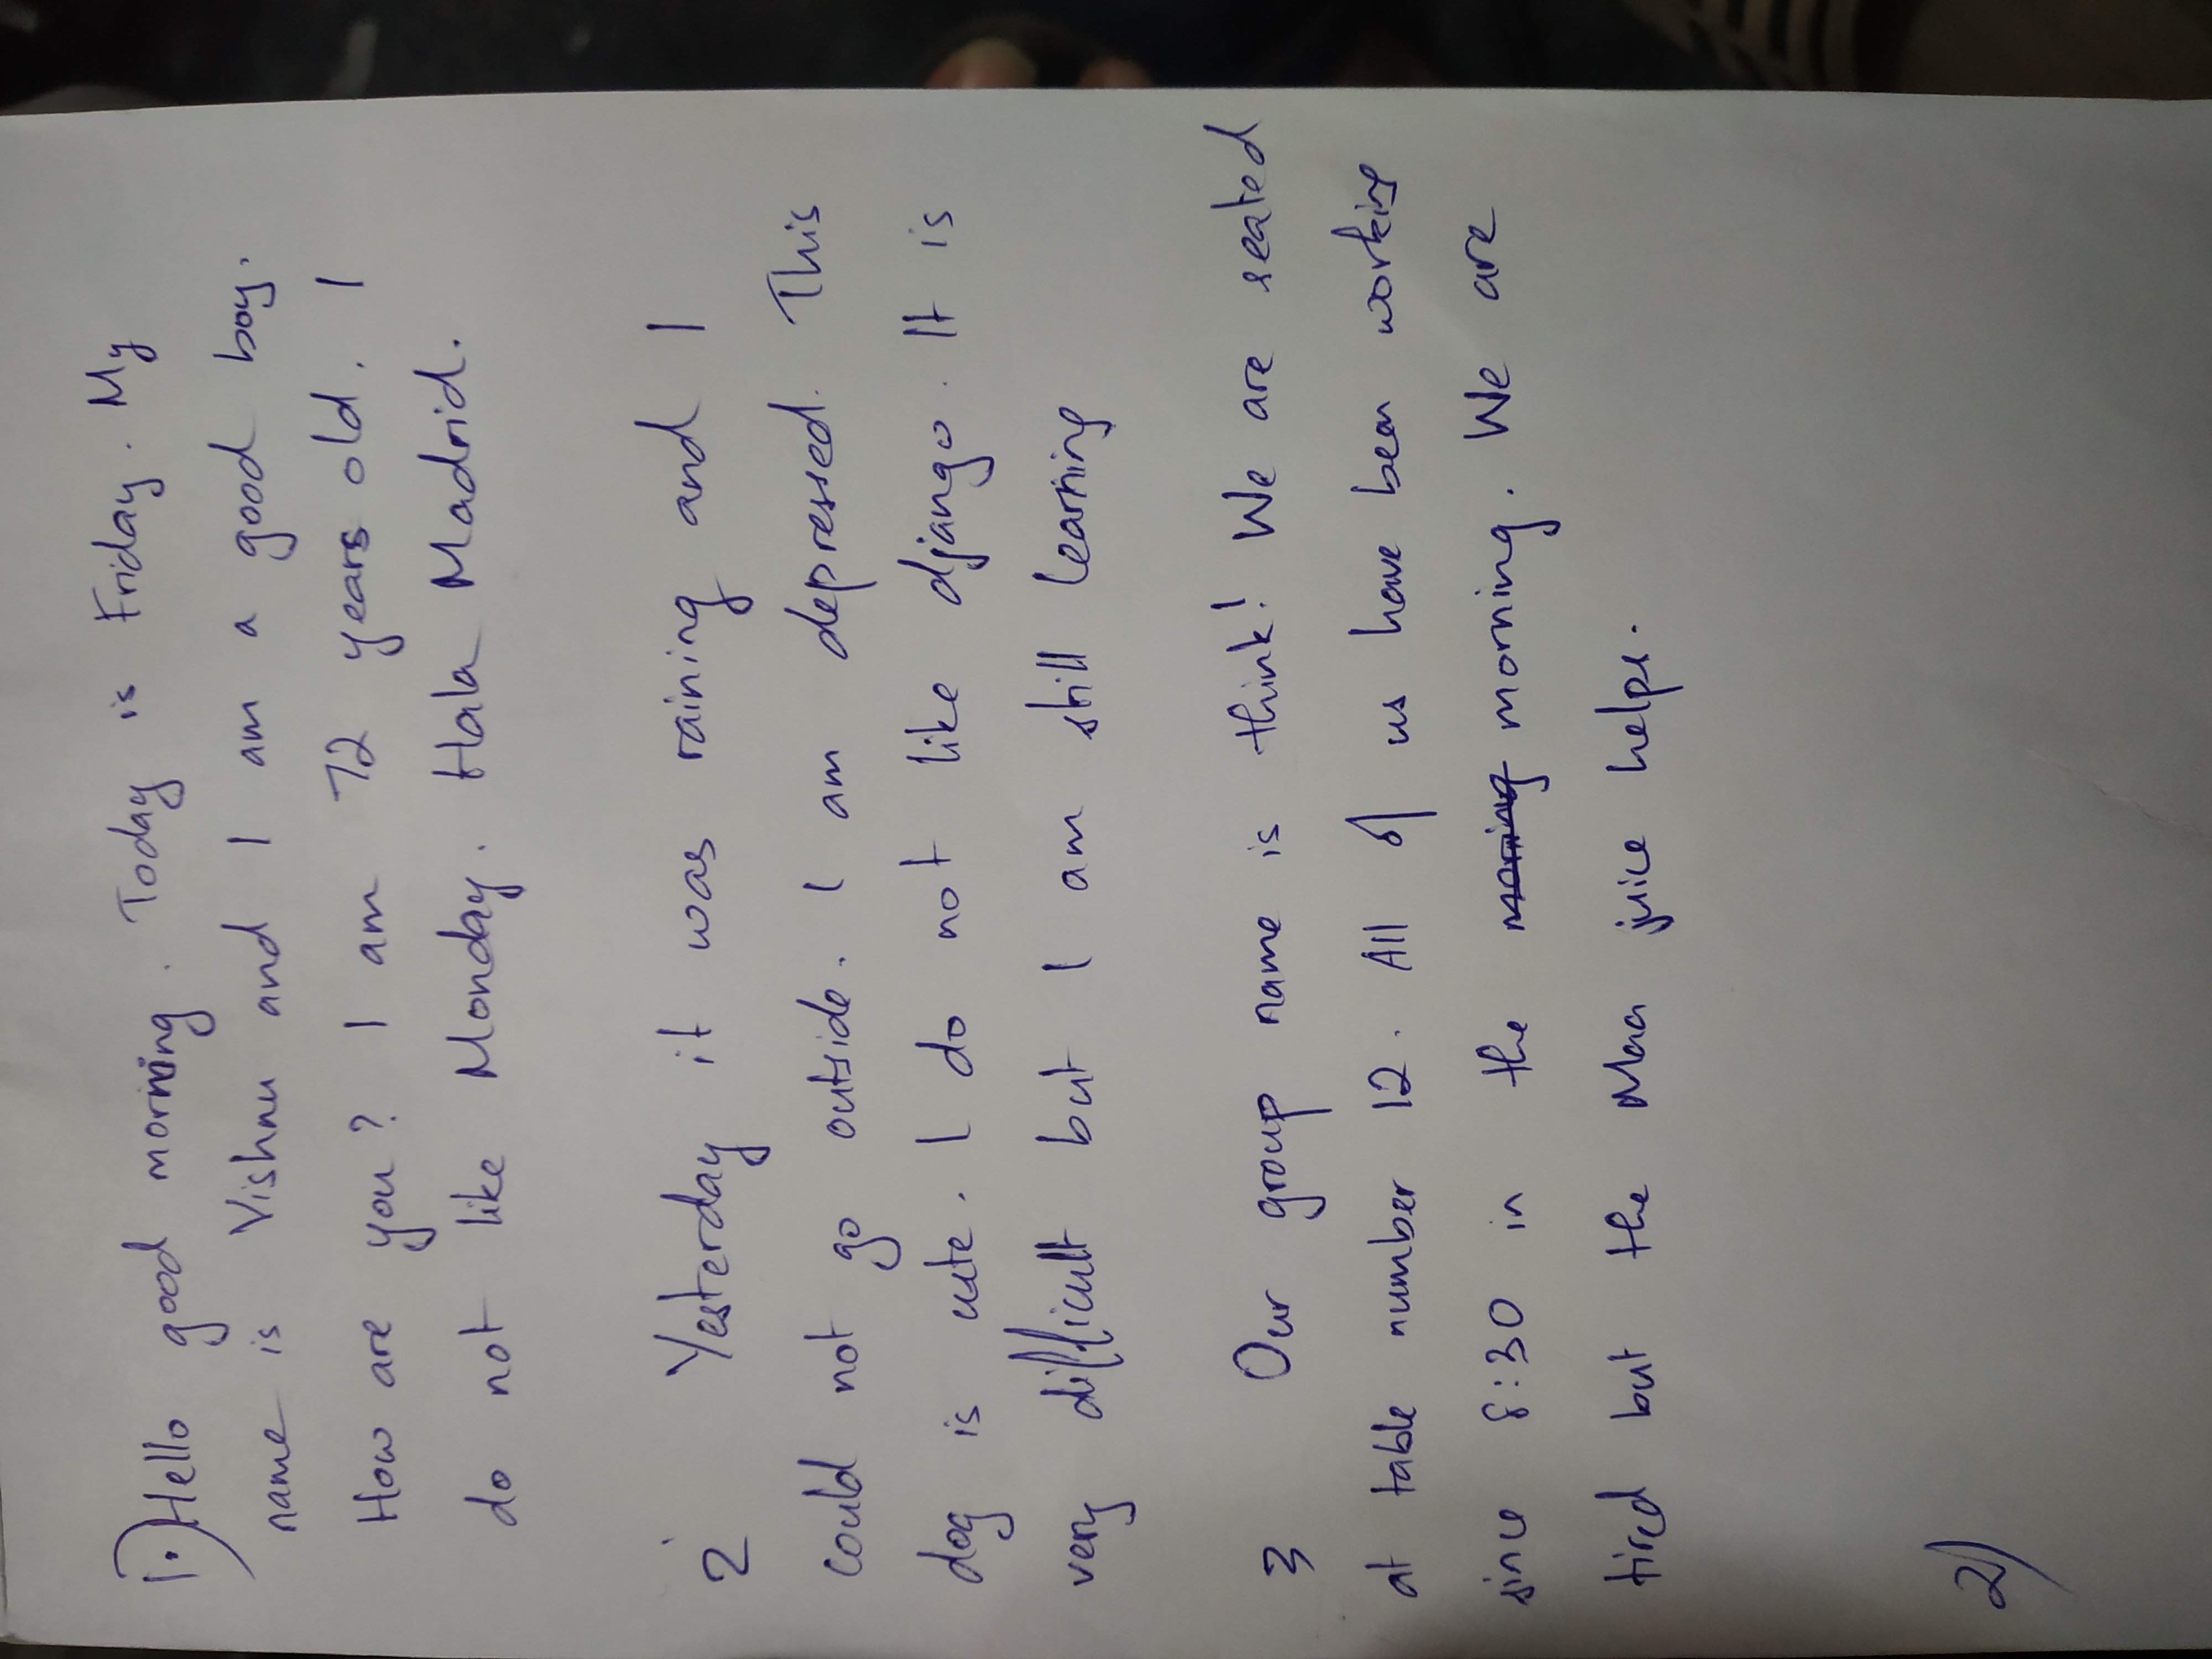 1.) Hello good morning. Today is Friday. My
name is Vishnu and I am a good boy.
How are you? I am 72 years old. I
do not like Monday. Hala Madrid.
2 Yesterday it was raining and I
could not go outside. I am depressed. This
dog is cute. I do not like django. It is
very difficult but I am still learning
3 Our group name is think! We are seated
at table number 12. All of us have been working
since 8:30 in the moring morning. We are
tired but the Maa juice helps.
2)